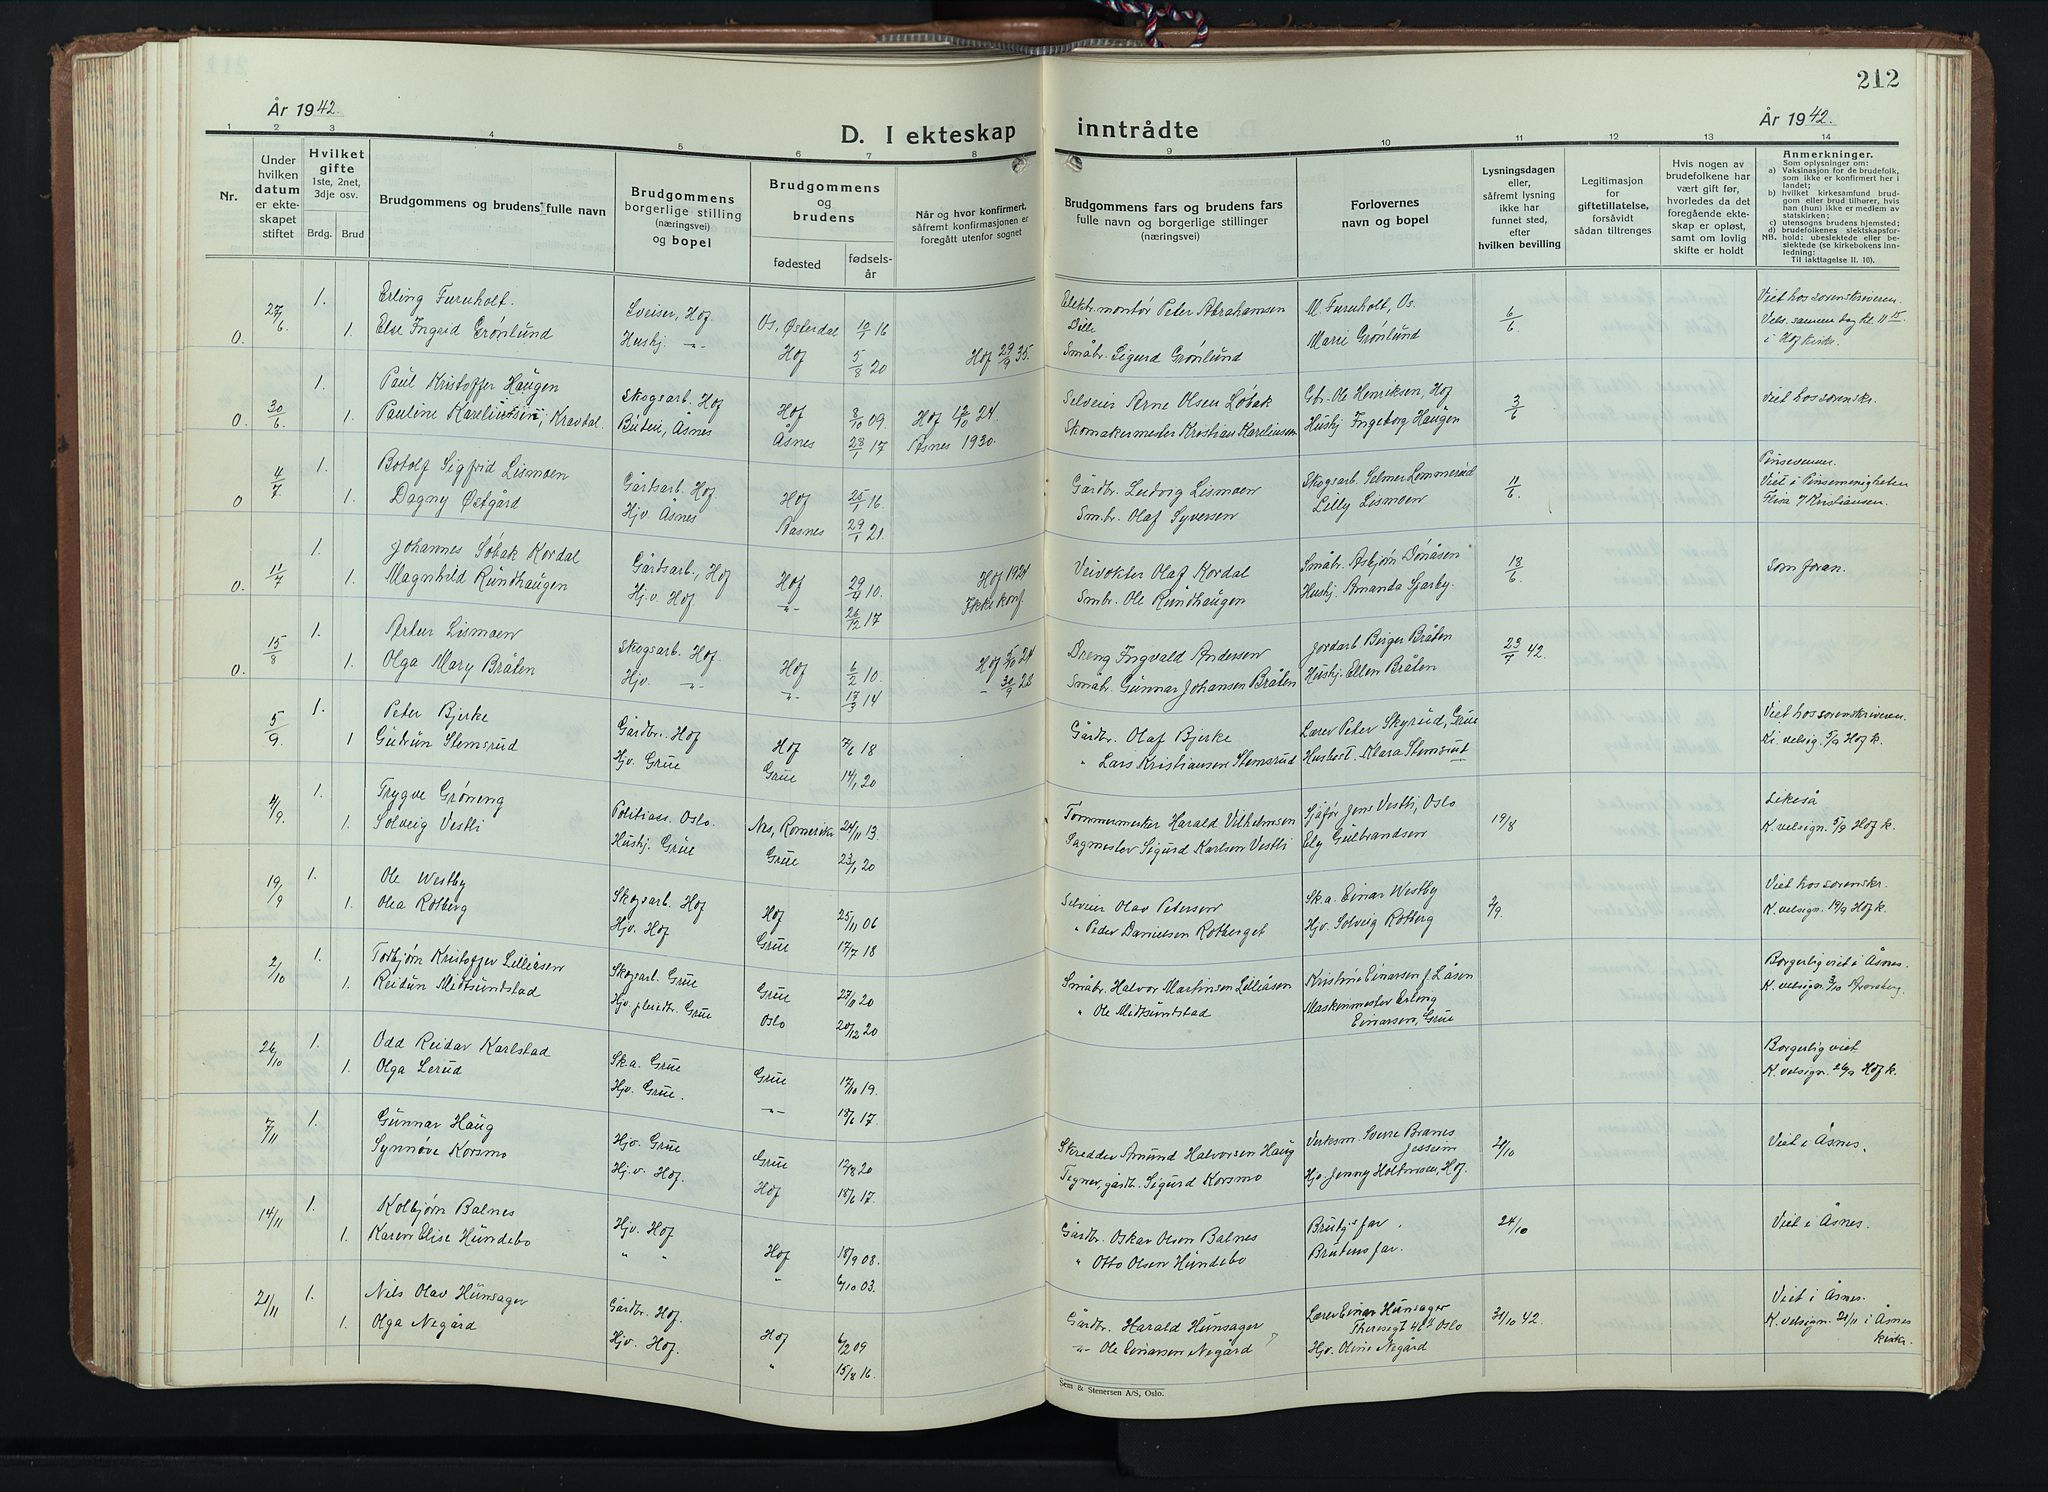 212
År 1942.
D. I ekteskap inntrådte
År 1942.
1 2 3 4 5 6 7 8 9 10 11 12 13 14
Nr.
Under hvilken datum er ekteskapet stiftet
Hvilket gifte
1ste, 2net, 3dje osv.
Brdg. Brud
Brudgommens og brudens fulle navn
Brudgommens borgerlige stilling (næringsvei) og bopel
Brudgommens og brudens
fødested
fødselsår
Når og hvor konfirmert, såfremt konfirmasjonen er foregått utenfor sognet
Brudgommens fars og brudens fars fulle navn og borgerlige stillinger (næringsvei)
Forlovernes navn og bopel
Lysningsdagen eller, såfremt lysning ikke har funnet sted, efter hvilken bevilling
Legitimasjon for giftetillatelse, forsåvidt sådan tiltrenges
Hvis nogen av brudefolkene har vært gift før, hvorledes da det foregående ekteskap er opløst, samt om lovlig skifte er holdt
Anmerkninger.
Som oplysninger om:
a) Vaksinasjon for de brudefolk, som ikke er konfirmert her i landet;
b) hvilket kirkesamfund brudgom eller brud tilhører, hvis han (hun) ikke er medlem av statskirken;
c) utensogns brudens hjemsted;
d) brudefolkenes slektskapsforhold: ubeslektede eller beslektede (se kirkebokens innledning:
NB. Til iakttagelse II. 10).
0. 27/6 1. Erling Furuholt. Sveiser, Hof Os, Østerdal 10/1 16 Elektr. montør Peter Abrahamsen Dille M. Furuholt, Os. 6/6 Viet hos sorenskriveren.
1. Else Ingrid Grønlund Hushj. -"- Hof 5/8 20 Hof 29/9 35. Småbr. Sigurd Grønlund Marie Grønlund Vels. samme dag kl. 11 15 i Hof kirke.
0. 30/6 1. Paul Kristoffer Haugen Skogsarb. Hof Hof 8/10 09. Hof 12/10 24 Selveier Arne Olsen Løbak Gbr. Ole Henriksen, Hof 3/6 Viet hos sorenskr.
1. Pauline Kareliussen, Kravdal. Budeie, Åsnes Åsnes 23/1 17 Åsnes 1930. Skomakermester Kristian Kareliussen Hushj. Ingeborg Haugen
0 4/7 1. Botolf Sigfrid Lismoen Gårdsarb. Hof. Hof 25/1 16. Gårdbr. Ludvig Lismoen Skogsarb. Selmer Lommerud 11/6 Pinsevenner.
1. Dagny Østgård Hjv. Åsnes Åsnes 29/1 21 Smbr. Olaf Syversen Lilly Lismoen Viet i Pinsemenigheten
Kristiansen.
0. 11/7 1. Johannes Søbak Kordal Gårdsarb., Hof Hof 29/4 10. Hof 1924 Veivokter Olaf Kordal Småbr. Asbjørn Dønåsen 18/6 Som foran.
1. Magnhild Rundhaugen Hj.v. Hof -"- 26/12 17 Ikke konf. Smbr. Ole Rundhaugen Hushj. Amanda Sparby.
0. 15/8 1. Artur Lismoen Skogsarb. Hof. Hof 6/2 10. Hof 5/10 24 Dreng Ingvald Andersen Jordarb Birger Bråten 23/7 42.
1. Olga Mary Bråten Hjv. -"- -"- 17/3 14 - 30/9 28 Småbr. Gunnar Johansen Bråten Hushj. Ellen Bråten
5/9. 1. Peter Bjerke Gårdbr. Hof Hof 7/6 18 Gårdbr. Olaf Bjerke Lærer Peter Skyrud, Grue Viet hos sorenskriveren.
1 Gudrun Stemsrud Hjv. Grue Grue 14/1 20 " Lars Kristiansen Stemsrud Husbest. Klara Stemsrud -"- Ki. velsig. 5/9 Hof k.
4/9. 1. Trygve Grøneng Politiass. Oslo. Nes, Romerike 24/11 13. Tømmermerker Harald Vilhelmsen Sjåfør Jens Vestli, Oslo 19/8 Likeså
1. Solveig Vestli Hushj. Grue Grue 23/1 20 Sagmester Sigurd Karlsen Vestli Ely Gulbrandsen K. velsign. 5/9 Hof k.
19/9 1. Ole Westby Skogsarb. Hof Hof 25/11 06 Selveier Olav Pedersen Sk.a. Einar Westby 2/9. Viet hos sorenskr.
1. Olea Rotberg Hjv. Hof Grue 17/7 18 " Peder Danielsen Rotberget Hjv. Solveig Rotberg K. velsign. 19/9 Hof k.
2/10 1. Torbjørn Kristoffer Lilleåsen Skogsarb. Grue Grue 27/10 20 Småbr. Halvor Martinsen Lilleåsen Kristine Einarsen f. Låsen Borgerlig viet i Åsnes.
1. Reidun Midtsundstad Hjv. Grue Oslo 20/12 20 " Ole Midtsundstad Maskinmester Erling Einarsen, Grue K. velsign. 3/10 Arneberg.
26/10 1. Odd Reidar Karlstad Sk.a. Grue Grue 17/10 19. Borgerlig viet
1. Olga Lerud Hjv. Grue. -"- 18/6 17. K. velsign. 26/9 Hof k.
7/11 1. Gunnar Haug Hjv. Grue Grue 12/8 20 Skredder Amund Halvorsen Haug Verksm. Sverre Branes Jessheim 21/10 Viet i Åsnes.
Synnøve Korsmo Hj.v. Hof. Hof 18/6 17. Tegner, gårdb. Sigurd Korsmo Hjv Jenny Holtmoen, Hof.
14/11 1. Kolbjørn Balnes Hjv. Hof Hof 18/9 08. Gårdbr. Oskar Olsen Balnes Brudgs far. 24/10 Viet i Åsnes.
1. Karen Elise Hundebo " " " 6/10 03. " Otto Olsen Hundebo Brudens far.
21/11 1. Nils Olav Hunsager Gårdbr. Hof. Hof 6/2 09 Gårdbr. Harald Hunsager Lærer Einar Hunsager Theresegt 46 Oslo 31/10 42. Viet i Åsnes.
1. Olga Negård Hjv. Hof. " 15/8 16. -"- Ole Einarsen Negård Hjv. Oline Negård K. velsign. 21/11 i Åsnes kirke.
Sem & Stenersen A/S, Oslo.